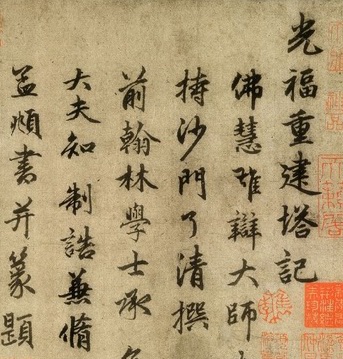 光福重建塔記
佛慧雄辯大師
持沙門了清撰
前翰林學士承
大夫知制誥兼脩
孟頫書并篆題